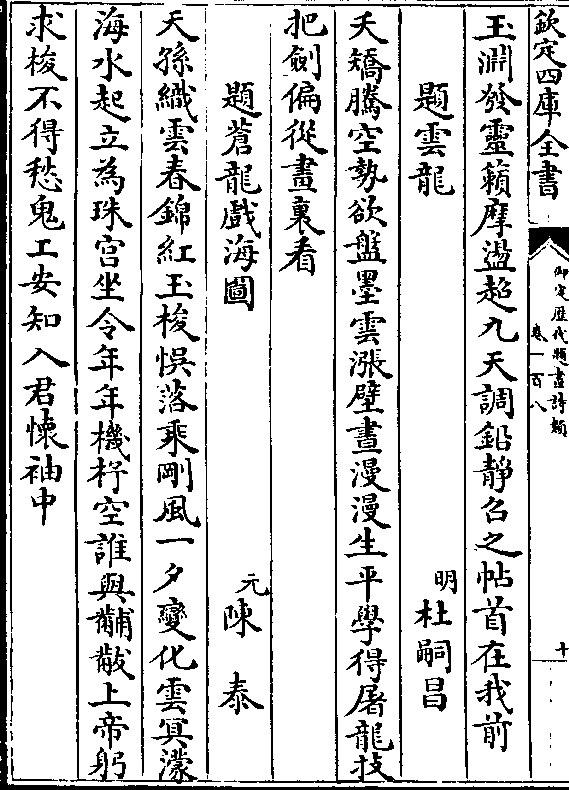 欽定四庫全書
御定歴代題畫詩類
卷一百八
十
玉淵發靈籟摩盪超九天調鉛靜召之帖首在我前
題雲龍
明杜嗣昌
夭矯騰空勢欲盤墨雲漲壁晝漫漫生平學得屠龍技
把劍偏從畫裏看
題蒼龍戲海圖
元陳泰
天孫織雲春錦紅玉梭悞落乘剛風一夕變化雲冥濛
海水起立為珠宮坐令年年機杼空誰與黼黻上帝躬
求梭不得愁鬼工安知入君懷袖中